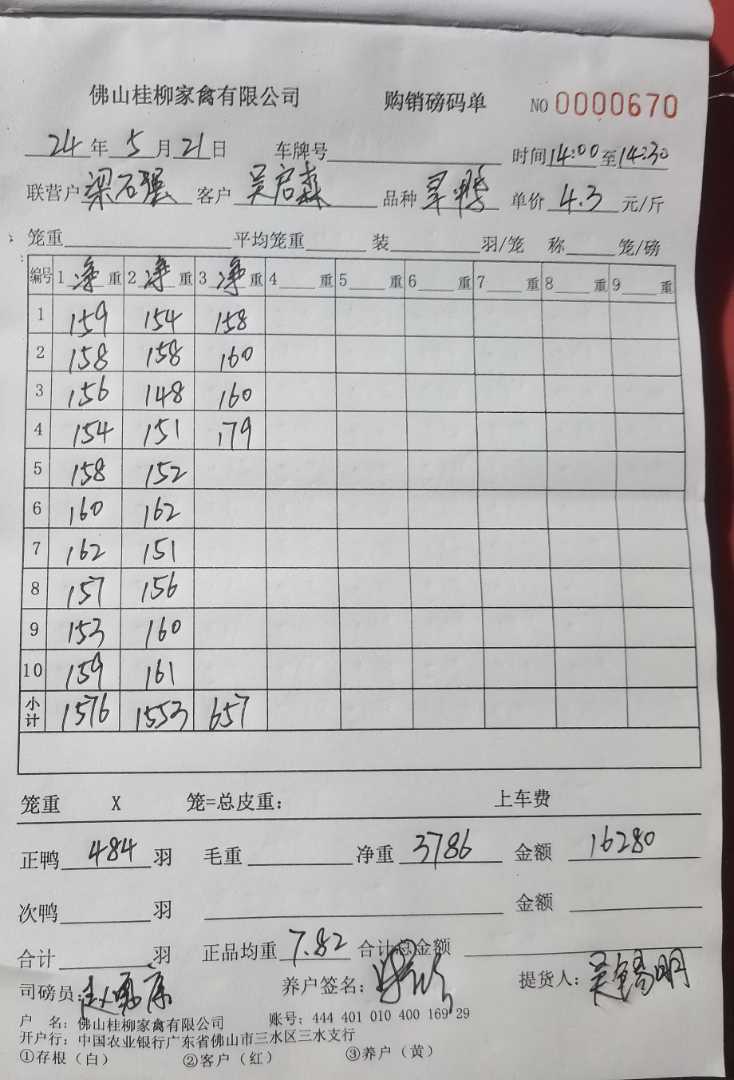 佛山桂柳家禽有限公司 购销磅码单 NO 0000670
24 年 5 月 21 日 车牌号 时间 14:00 至 14:30
联营户 梁石强 客户 吴启森 品种 单价 4.3 元/斤
笼重 平均笼重 装 羽/笼 称 笼/磅
编号 1 净 重 2 净 重 3 净 重 4 重 5 重 6 重 7 重 8 重 9 重
1 159 154 158
2 158 158 160
3 156 148 160
4 154 151 179
5 158 152
6 160 162
7 162 151
8 157 156
9 153 160
10 159 161
小计 1576 1553 657
笼重 X 笼=总皮重: 上车费
正鸭 484 羽 毛重 净重 3786 金额 16280
次鸭 羽 金额
合计 羽 正品均重 7.82 合计总金额
司磅员: 养户签名: 提货人: 吴锡明
户 名: 佛山桂柳家禽有限公司 账号: 444 401 010 400 169 29
开户行: 中国农业银行广东省佛山市三水区三水支行
①存根(白) ②客户(红) ③养户(黄)